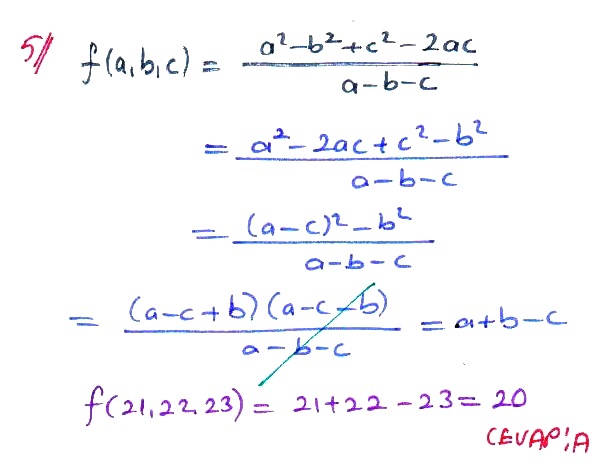 5// f(a,b,c) = a²-b²+c²-2ac / a-b-c
= a²-2ac+c²-b² / a-b-c
= (a-c)²-b² / a-b-c
= (a-c+b)(a-c-b) / a-b-c = a+b-c
f(21,22,23) = 21+22-23=20
CEVAP:A